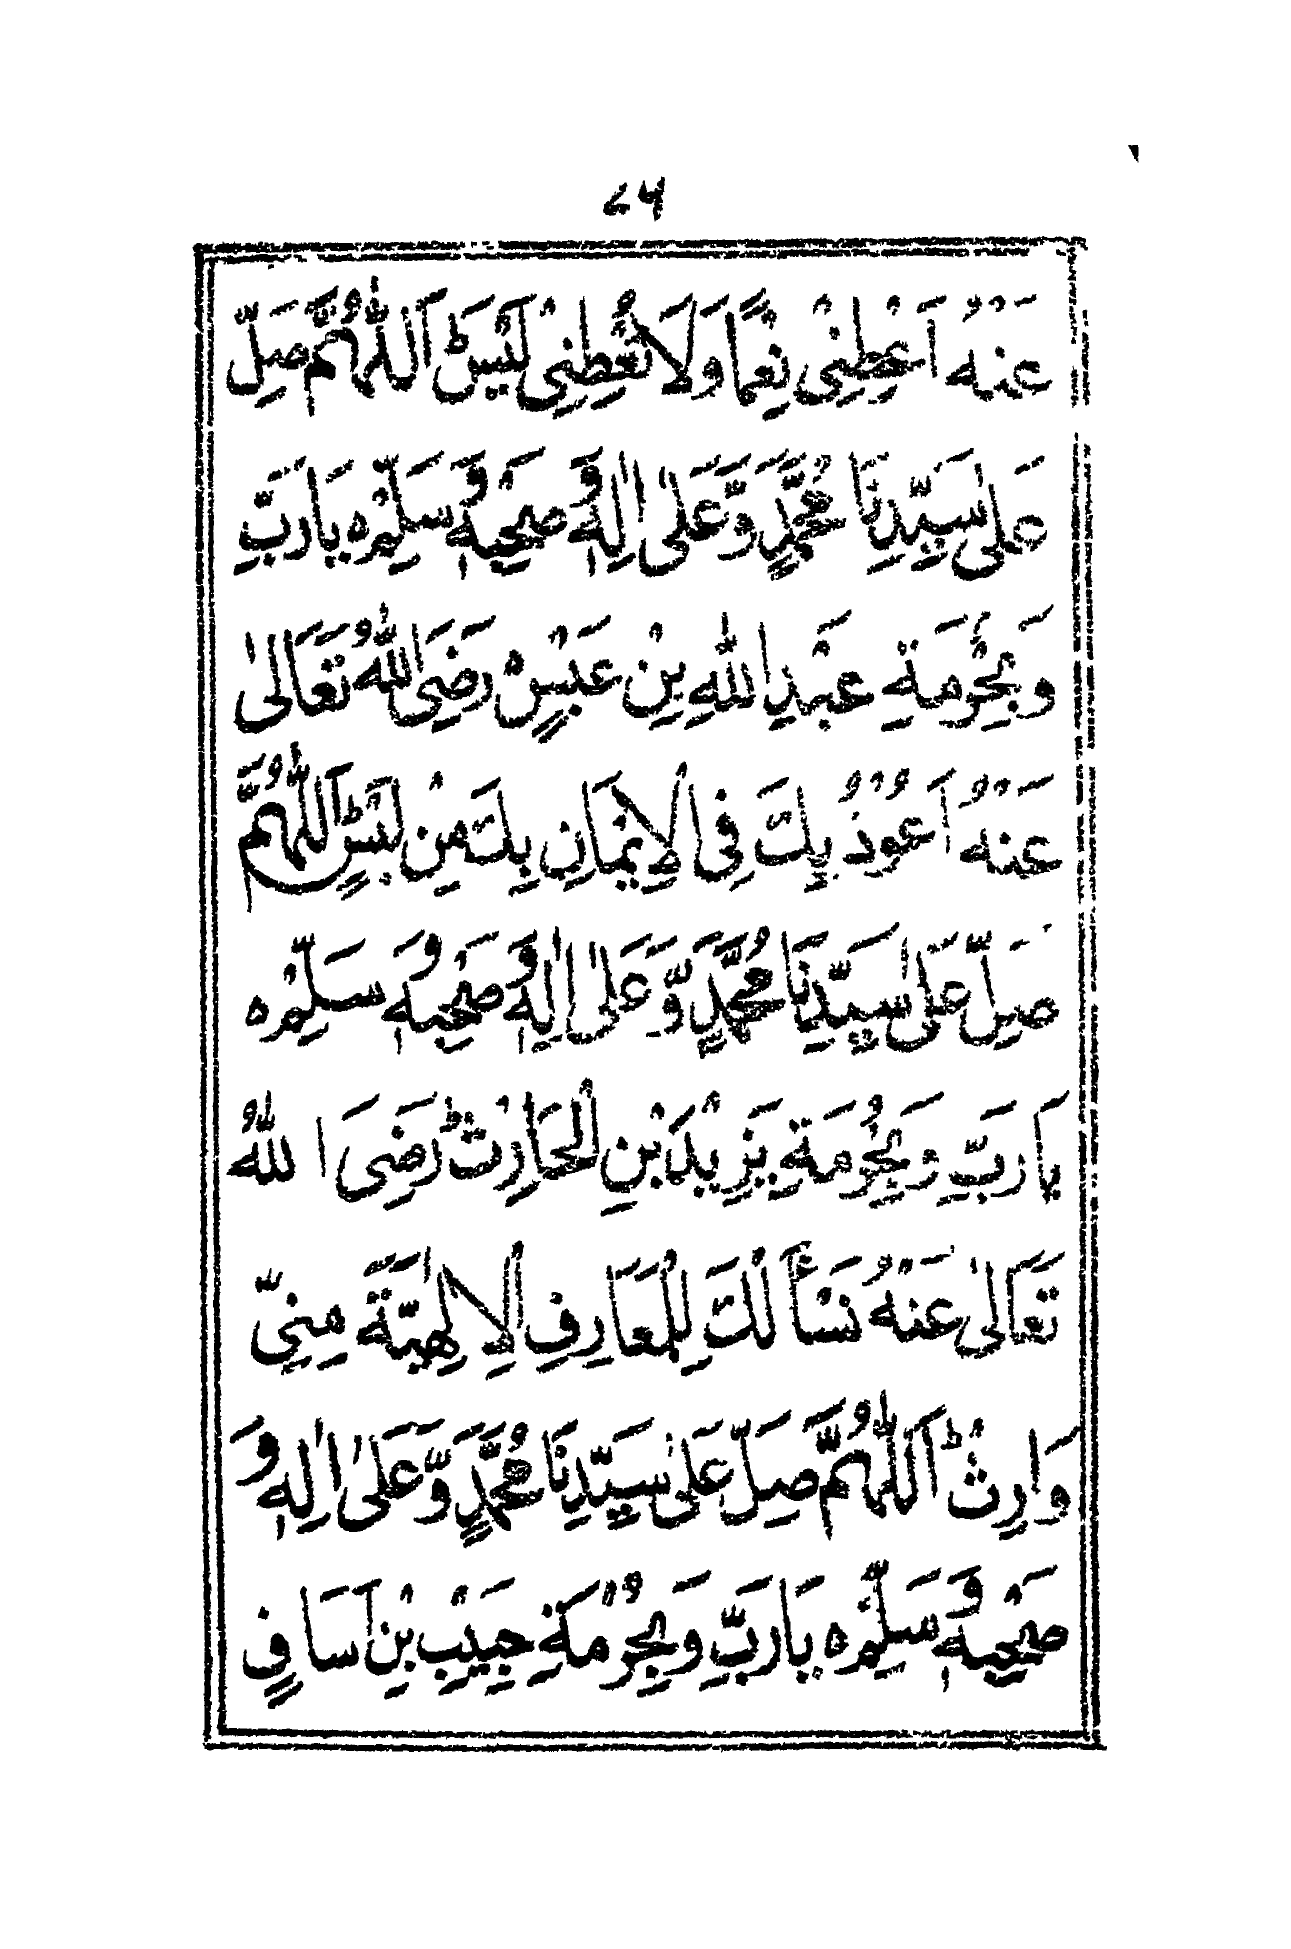 ۷۶
عَنْهُ اَعْطِنِیْ نِعْمًا وَلَا تُعْطِنِیْ لَبْسَ ؕ اَللّٰهُمَّ صَلِّ
عَلٰی سَیِّدِنَا مُحَمَّدٍ وَّعَلٰی اٰلِهٖ وَصَحْبِهٖ وَسَلِّمْ ہ یَارَبِّ
وَبِحُرْمَةِ عَبْدِ اللّٰهِ بْنِ عَبْسٍ رَضِیَ اللّٰهُ تَعَالٰی
عَنْهُ اَعُوْذُ بِكَ فِی الْاِیْمَانِ بِكَ مِنْ لَبْسٍ ؕ اَللّٰهُمَّ
صَلِّ عَلٰی سَیِّدِنَا مُحَمَّدٍ وَّعَلٰی اٰلِهٖ وَصَحْبِهٖ وَسَلِّمْ ہ
یَارَبِّ وَبِحُرْمَةِ یَزِیْدَ بْنِ الْحَارِثْ ؕ رَضِیَ اللّٰهُ
تَعَالٰی عَنْهُ نَسْأَلُكَ لِلْمَعَارِفِ الْاِلٰهِیَّةِ مِنِّیْ
وَارِثْ ؕ اَللّٰهُمَّ صَلِّ عَلٰی سَیِّدِنَا مُحَمَّدٍ وَّعَلٰی اٰلِهٖ وَ
صَحْبِهٖ وَسَلِّمْ ہ یَارَبِّ وَبِحُرْمَةِ حَبِیْبِ بْنِ اَسَافٍ